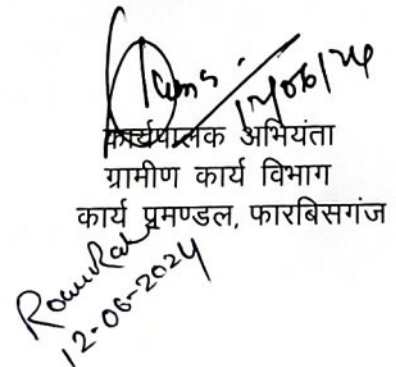 12/06/24
कार्यपालक अभियंता
ग्रामीण कार्य विभाग
कार्य प्रमण्डल, फारबिसगंज
12-06-2024